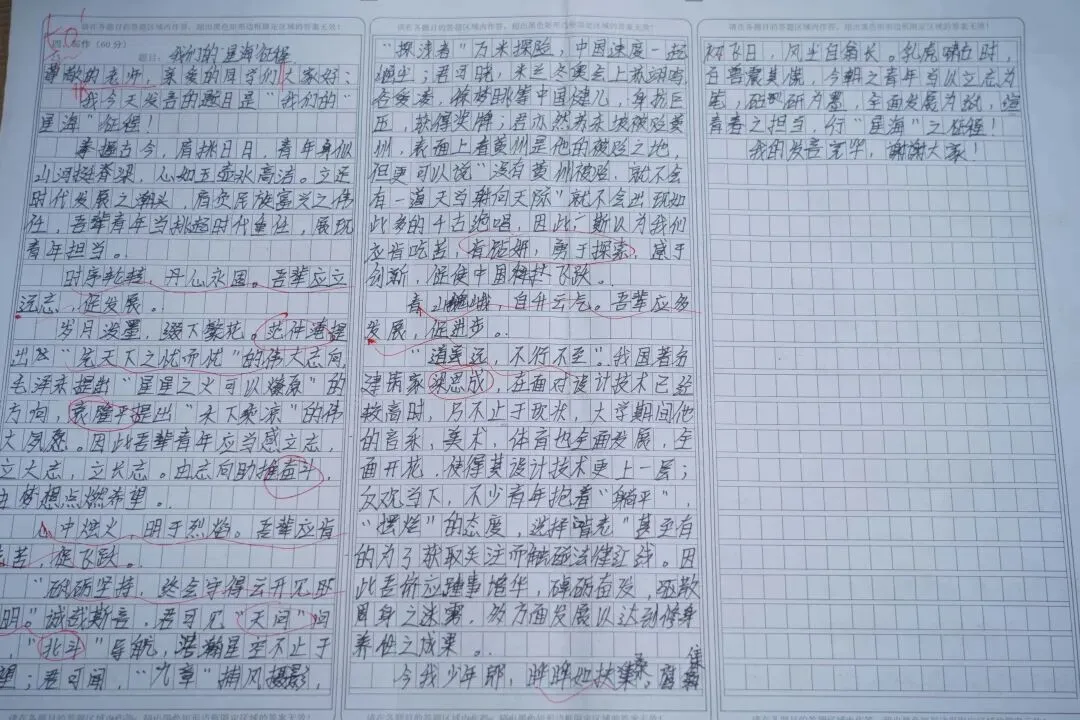 请在各题目的答题区域内作答，超出黑色矩形边框限定区域的答案无效！
四、写作（60分）
50
题目：我们的星海征程
尊敬的老师，亲爱的同学们大家好：
我今天发言的题目是“我们的“
星海”征程！
掌握古今，肩挑日月，青年身似
山河挺脊梁，心如玉壶冰高洁。立足
时代发展之潮头，肩负民族富兴之伟
任，吾辈青年当挑起时代重任，展现
青年担当。
时序轮转，丹心永固。吾辈应立
远志，促发展。
岁月泼墨，缀下繁花。范仲淹提
出“先天下之忧而忧”的伟大志向，
毛泽东提出“星星之火可以燎原”的
方向，袁隆平提出“禾下乘凉”的伟
大夙愿。因此吾辈青年应当感立志，
立大志，立长志。由志向助推奋斗，
由梦想点燃希望。
心中烛火，明于烈焰。吾辈应肯
吃苦，促飞跃。
“砥砺坚持，终会守得云开见月
明。”诚哉斯言，君可见“天问”问
，“北斗”导航，浩瀚星空不止于
望；君可闻，“九章”捕风摄影，
请在各题目的答题区域内作答，超出黑色矩形边框限定区域的答案无效！
“探渎者”万米探险，中国速度一起
；君可晓，米兰冬奥会上苏翊鸣
各凌凌，徐梦桃等中国健儿，身抗巨
压，获得奖牌；君亦然苏东坡被贬黄
州，表面上看黄州是他的被贬之地，
但更可以说“没有黄州被贬，就不会
有一道天当朝向天际”就不会出现如
此多的千古绝唱，因此，斯以为我们
应肯吃苦，有钻研，勇于探索，感于
创新，促使中国科技飞跃。
春山巍峨，自升云气。吾辈应多
发展，促进步。
“道虽远，不行不至”。我国著名
建筑家梁思成，在面对设计技术已经
较高时，乃不止于现状，大学期间他
的音乐，美术，体育也全面发展，全
面开花，使得其设计技术更上一层；
反观当下，不少青年抱着“躺平”，
“摆烂”的态度，选择啃老”甚至有
的为了获取关注而触碰法律红线。因
此吾侪应踵事增华，砥砺奋发，驱散
周身之迷雾，多方面发展以达到修身
养性之成果。
今我少年郎，晔晔如扶桑，
请在各题目的答题区域内作答，超出黑色矩形边框限定区域的答案无效！
飞日，风尘自翕长。乳虎啸谷时，
百兽震其惶，今朝之青年当以立志为
笔，砥研为墨，全面发展为纸，绘
青春之担当，行“星海”之征程！
我的发言完毕，谢谢大家！